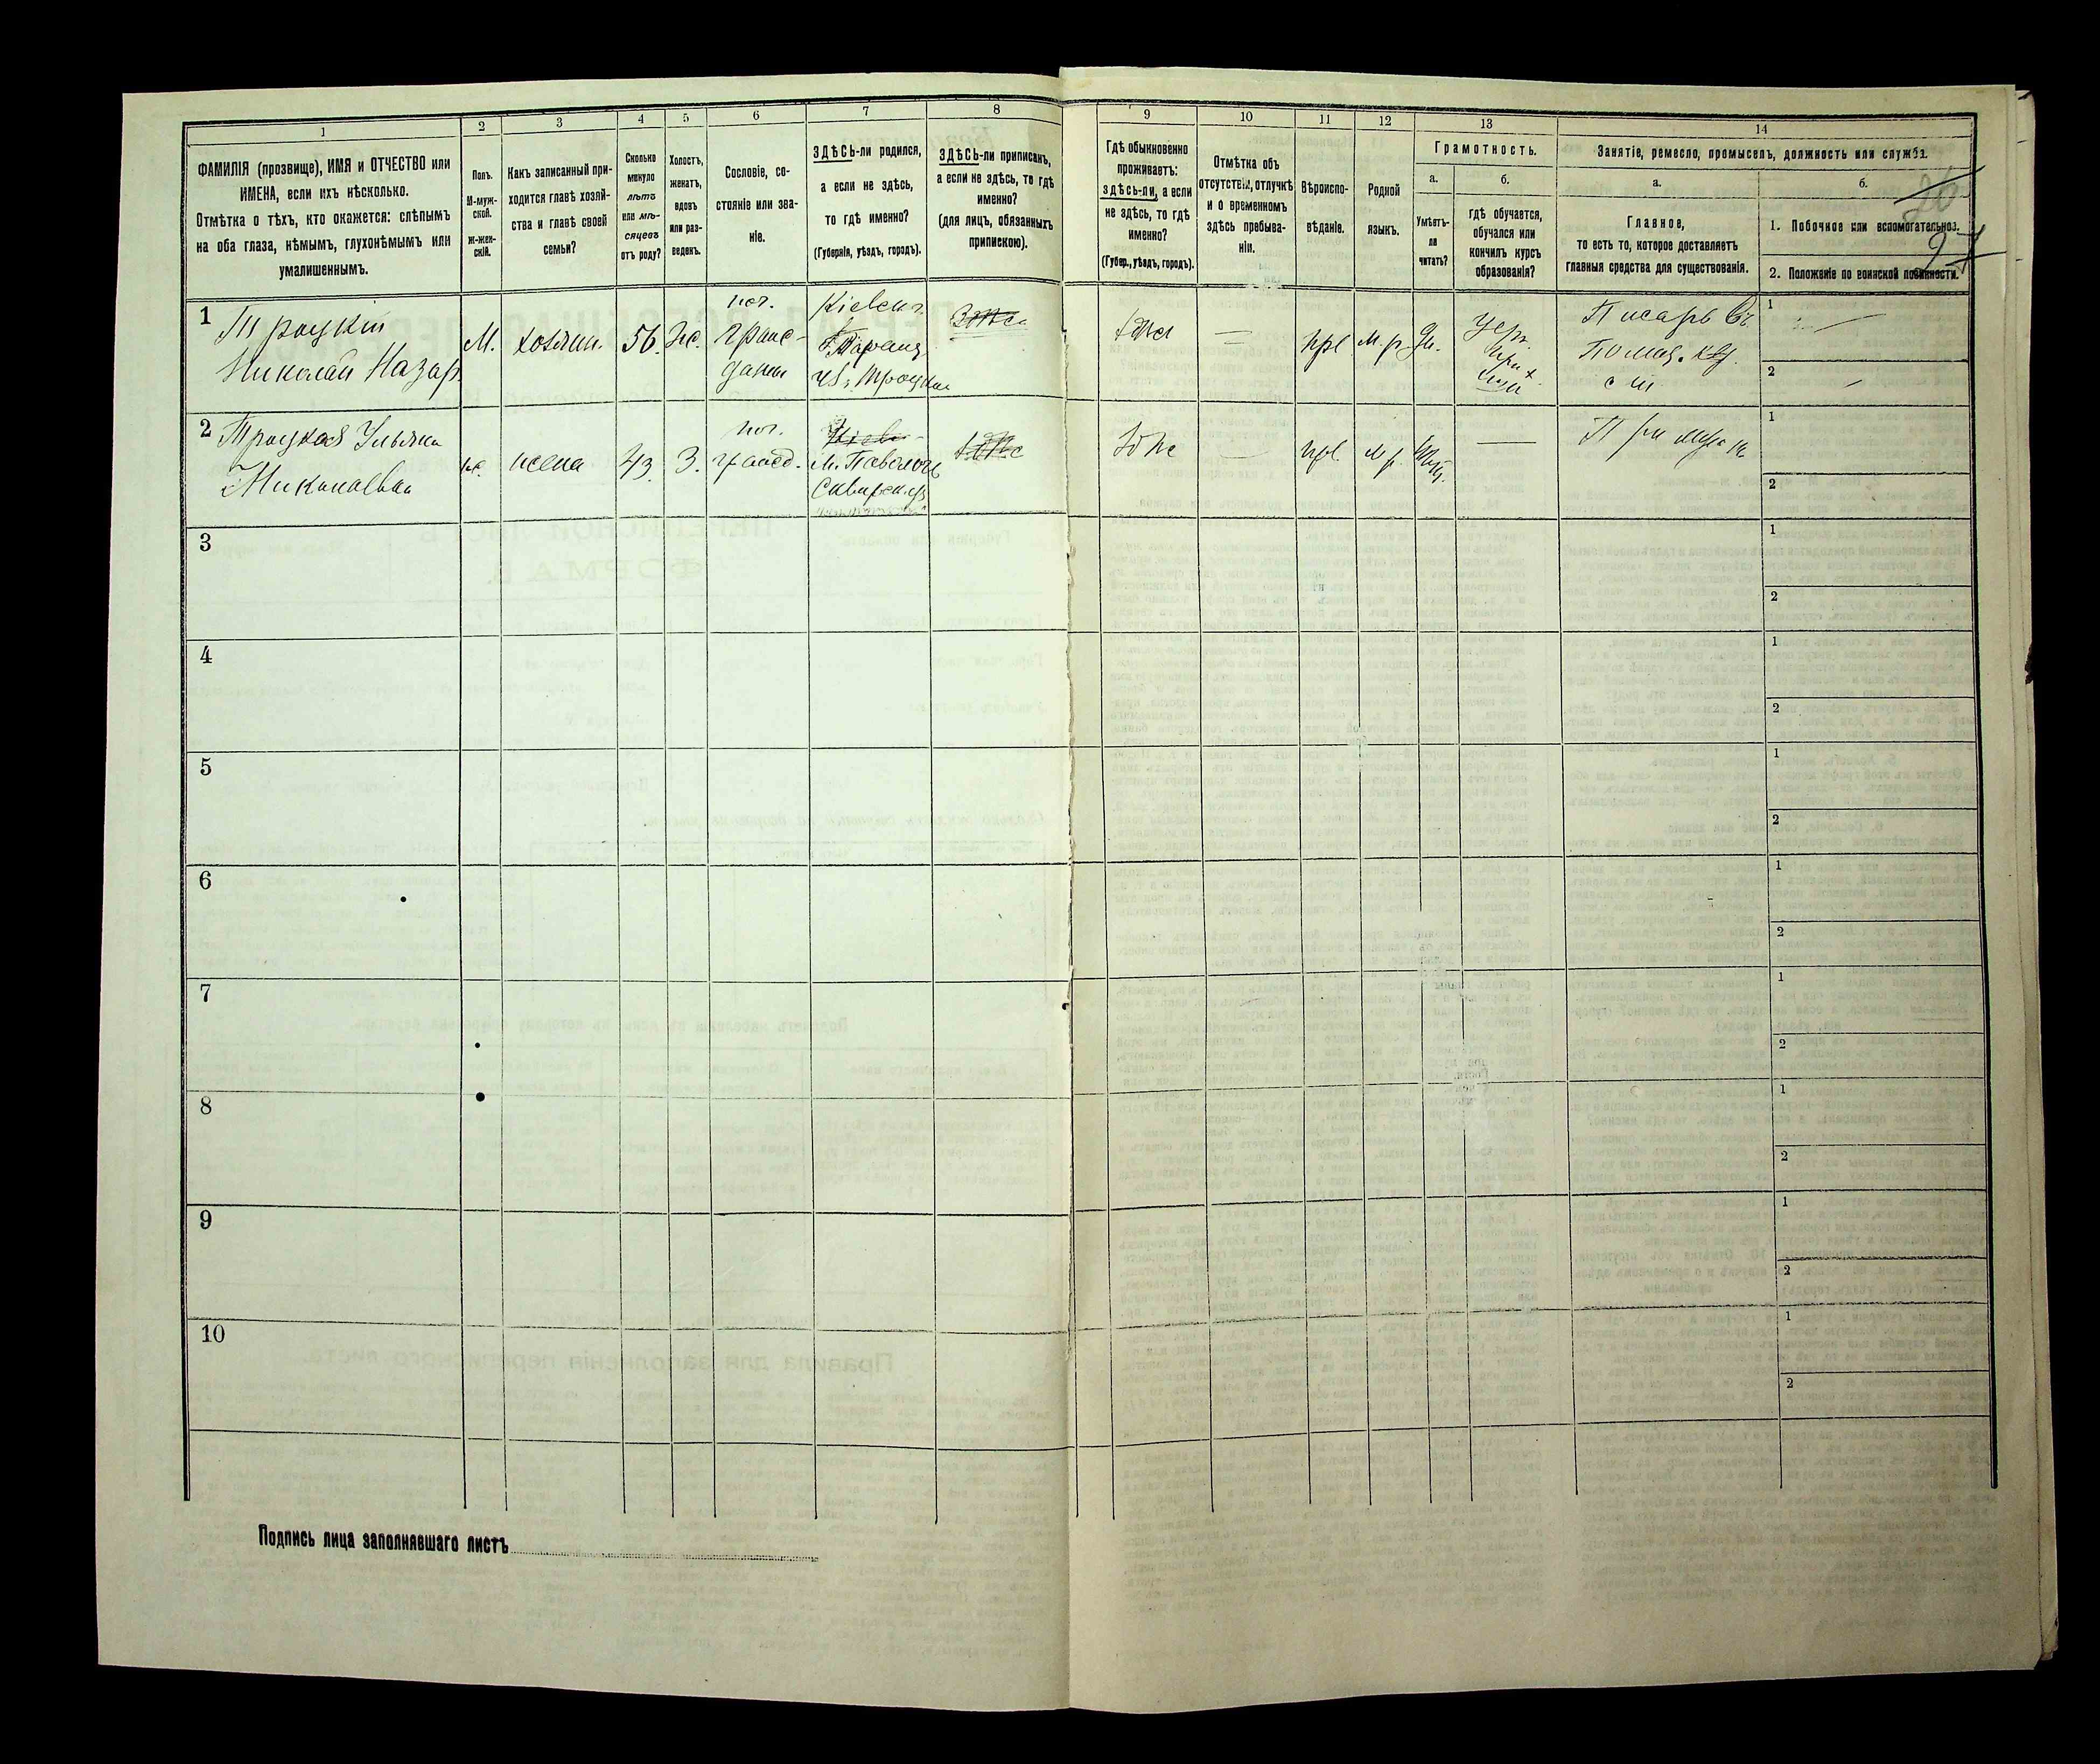 1
ФАМИЛІЯ (прозвище), ИМЯ и ОТЧЕСТВО или
ИМЕНА, если ихъ нѣсколько.
Отмѣтка о тѣхъ, кто окажется: слѣпымъ
на оба глаза, нѣмымъ, глухонѣмымъ или
умалишеннымъ.
2
Полъ.
М-муж-
ской.
ж-жен-
скій.
3
Какъ записанный при-
ходится главѣ хозяй-
ства и главѣ своей
семьи?
4
Сколько
минуло
лѣтъ
или мѣ-
сяцевъ
отъ роду?
5
Холостъ,
женатъ,
вдовъ
или раз-
веденъ.
6
Сословіе, со-
стояніе или зва-
ніе.
7
ЗДѢСЬ-ли родился,
а если не здѣсь,
то гдѣ именно?
(Губернія, уѣздъ, городъ).
8
ЗДѢСЬ-ли приписанъ,
а если не здѣсь, то гдѣ
именно?
(для лицъ, обязанныхъ
припискою).
9
Гдѣ обыкновенно
проживаетъ:
здѣсь-ли, а если
не здѣсь, то гдѣ
именно?
(Губер., уѣздъ, городъ).
10
Отмѣтка объ
отсутствіи, отлучкѣ
и о временномъ
здѣсь пребыва-
ніи.
11
Вѣроиспо-
вѣданіе.
12
Родной
языкъ.
13
Грамотность.
а.
Умѣетъ-
ли
читать?
б.
гдѣ обучается,
обучался или
кончилъ курсъ
образованія?
14
Занятіе, ремесло, промыселъ, должность или служба.
а.
Главное,
то есть то, которое доставляетъ
главныя средства для существованія.
б.
1. Побочное или вспомогательное.
2. Положеніе по воинской повинности.
26
27
1
Троцкій
Николай Назар.
М.
хозяин.
56.
Же.
поч.
граж-
данин
Кіевск.
Таращ.
Здѣсь
Здѣсь
—
прв
м. р
Да.
Писарь
1
2
2
Троцкая Ульяна
Николаевна
ж.
жена
43.
З.
поч.
гражд.
м. Паволочь
Сквирск. у.
Здѣсь
Здѣсь
—
прв.
м р.
—
При мужѣ
1
2
3
1
2
4
1
2
5
1
2
6
1
2
7
1
2
8
1
2
9
1
2
10
1
2
Подпись лица заполнявшаго листъ